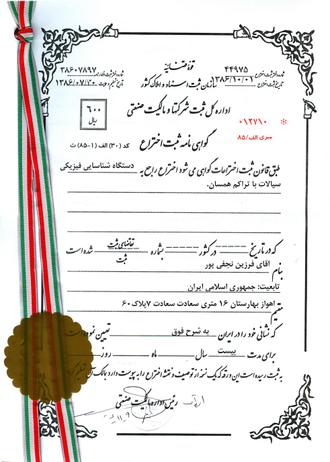 قوه قضائیه
۴۴۹۷۵
شماره ثبت اختراع
۱۳۸۶/۱۰/۰۱
تاریخ ثبت اختراع
سازمان ثبت اسناد و املاک کشور
۳۸۶۰۷۸۹۷
۱۳۸۶/۰۷/۳۰
اداره کل ثبت شرکتها و مالکیت صنعتی
۶۰۰
ریال
۰۱۲۷۱۰ *
سری الف/۸۵
گواهی نامه ثبت اختراع
کد (۳۰) الف (۱-۸۵) ث
طبق قانون ثبت اختراعات گواهی می شود اختراع راجع به دستگاه شناسایی فیزیکی
سیالات با تراکم همسان.
که در تاریخ ------ در کشور ------ بشماره ------ تقاضای ثبت شده است
ثبت
بنام آقای فرزین نجفی پور
تابعیت: جمهوری اسلامی ایران
مقیم اهواز بهارستان ۱۶ متری سعادت سعادت ۷ پلاک ۶۰
که نشانی خود را در ایران به شرح فوق تعیین نموده
برای مدت بیست سال ماه روز
به ثبت رسیده است این ورقه که یک نسخه از توصیف و نقشه اختراع را به پیوست دارد به مالک آن
رئیس اداره مالکیت صنعتی